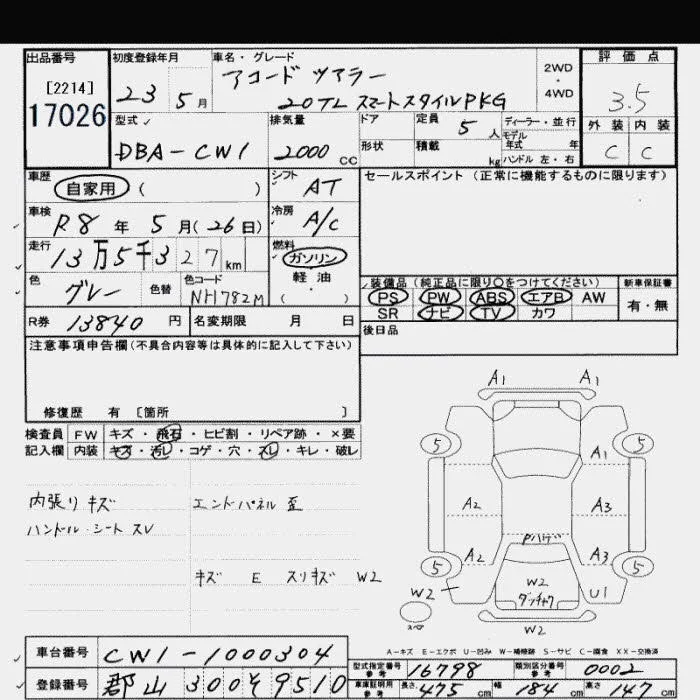 出品番号 初度登録年月 車名・グレード 評価点
[2214]
17026
23 5月
アコード ツアラー
20TL スマートスタイルPKG
2WD
・
4WD
3.5
型式 排気量 ドア 定員 5人 ディーラー・並行 外装 内装
モデル年式 年
DBA-CW1 2000cc 形状 積載 kg ハンドル 左・右 C C
車歴 自家用 ( ) シフト AT セールスポイント (正常に機能するものに限ります)
車検 R8年 5月(26日) 冷房 A/C
走行 13万5千327km 燃料 ガソリン
軽・油
( )
色 グレー 色替 色コード NH782M
装備品(純正品に限り〇をつけてください) 新車保証書
PS PW ABS エアB AW 有・無
SR ナビ TV カワ
R券 13840円 名変期限 月 日
後日品
注意事項申告欄(不具合内容等は具体的に記入して下さい)
修復歴 有 [箇所 ]
検査員 FW キズ・飛石・ヒビ割・リペア跡・×要
記入欄 内装 キズ・汚レ・コゲ・穴・スレ・キレ・破レ
内張りキズ エンドパネル 歪
ハンドル・シート スレ
キズ E スリキズ W2
A1 A1
5 5
A1
A2 A3
Pハゲ
A2 A3
5 5
W2 W2 U1
W2
A-キズ E-エクボ U-凹み W-補修跡 S-サビ C-腐食 XX-交換済
車台番号 CW1-1000304
型式指定番号 参考 16798 類別区分番号 参考 0002
登録番号 郡山 300 9510
車庫証明用 参考 長さ 475cm 幅 184cm 高さ 147cm